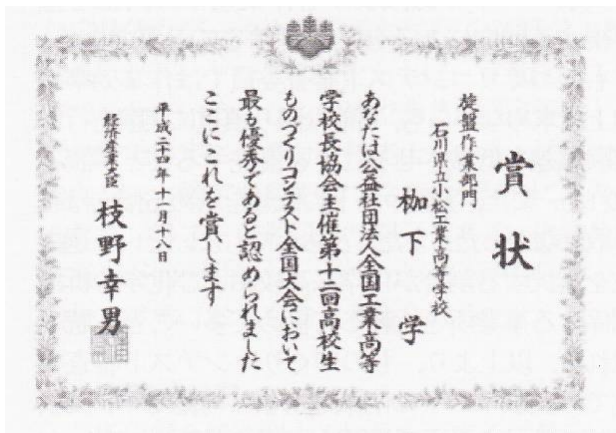 賞状
旋盤作業部門
石川県立小松工業高等学校
枷下 学
あなたは公益社団法人全国工業高等
学校長協会主催第十二回高校生
ものづくりコンテスト全国大会において
最も優秀であると認められました
ここにこれを賞します
平成二十四年十一月十八日
経済産業大臣 枝野幸男